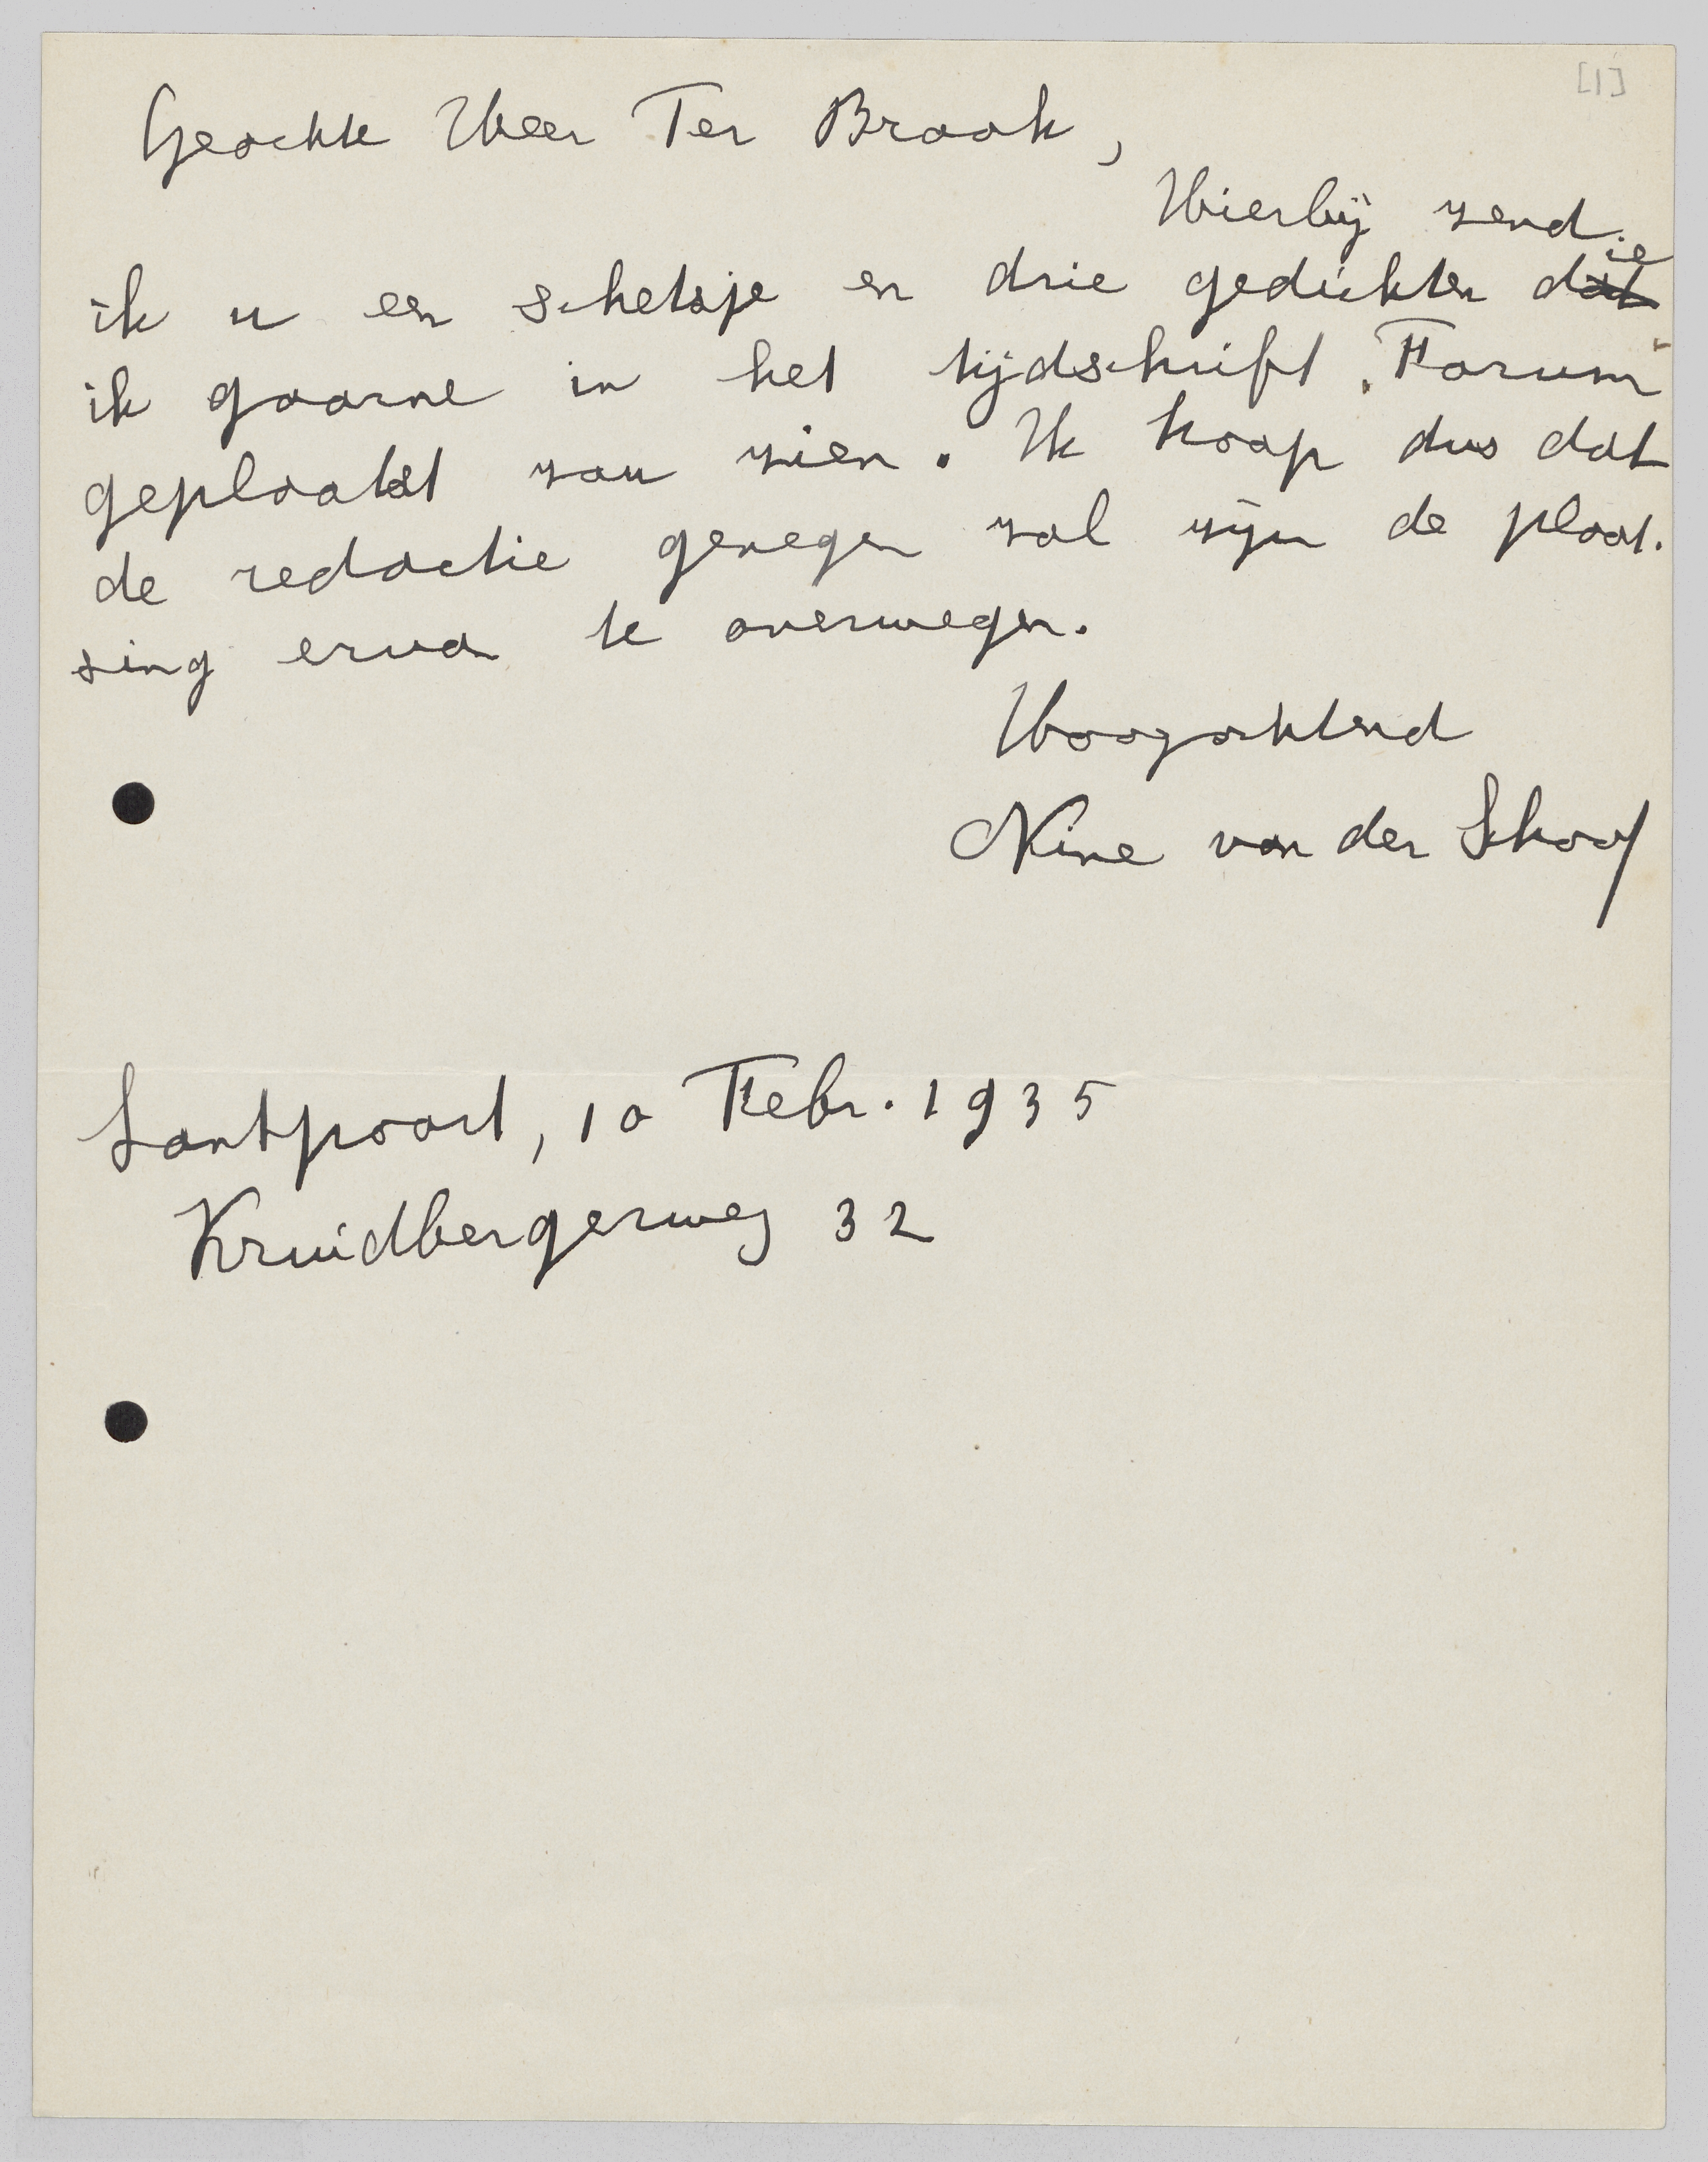 [1]
Geachte Heer Ter Braak,
Hierbij zend
ik u een schetsje en drie gedichten die
ik gaarne in het tijdschrift „Forum”
geplaatst zou zien. Ik hoop dus dat
de redactie genegen zal zijn de plaat-
sing ervan te overwegen.
Hoogachtend
Nine van der Schaaf
Santpoort, 10 Febr. 1935
Kruidbergerweg 32